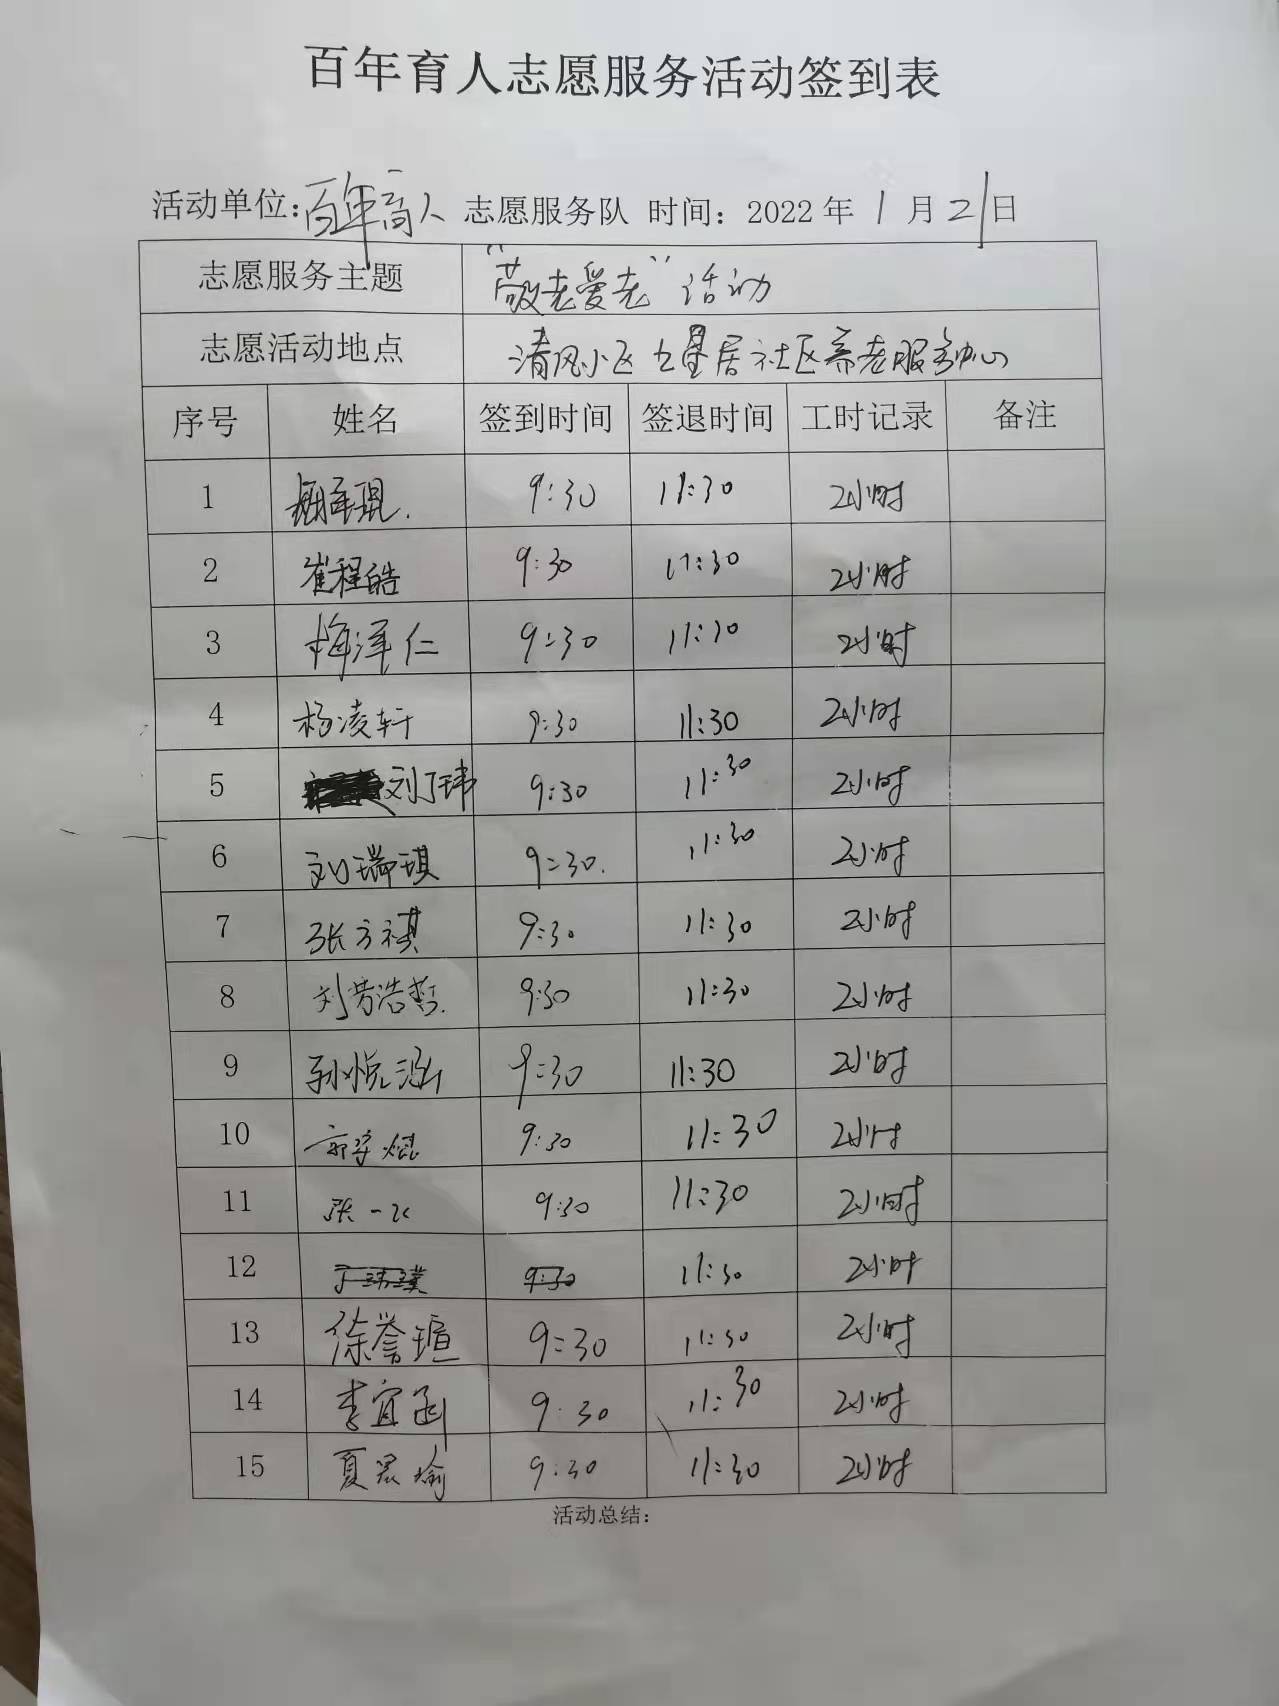 百年育人志愿服务活动签到表
活动单位:百年育人 志愿服务队 时间: 2022 年 1 月 21 日
志愿服务主题 “敬老爱老”活动
志愿活动地点 清风小区 五星居社区养老服务中心
序号 姓名 签到时间 签退时间 工时记录 备注
1 9:30 11:30 2小时
2 崔程皓 9:30 11:30 2小时
3 梅泽仁 9:30 11:30 2小时
4 杨凌轩 9:30 11:30 2小时
5 刘丁玮 9:30 11:30 2小时
6 刘瑞琪 9:30. 11:30 2小时
7 张方祺 9:30 11:30 2小时
8 刘芳浩哲. 9:30 11:30 2小时
9 孙悦涵 9:30 11:30 2小时
10 9:30 11:30 2小时
11 张一 9:30 11:30 2小时
12 9:30 11:30 2小时
13 徐誉瑄 9:30 11:30 2小时
14 李宜函 9:30 11:30 2小时
15 夏 瑜 9:30 11:30 2小时
活动总结: